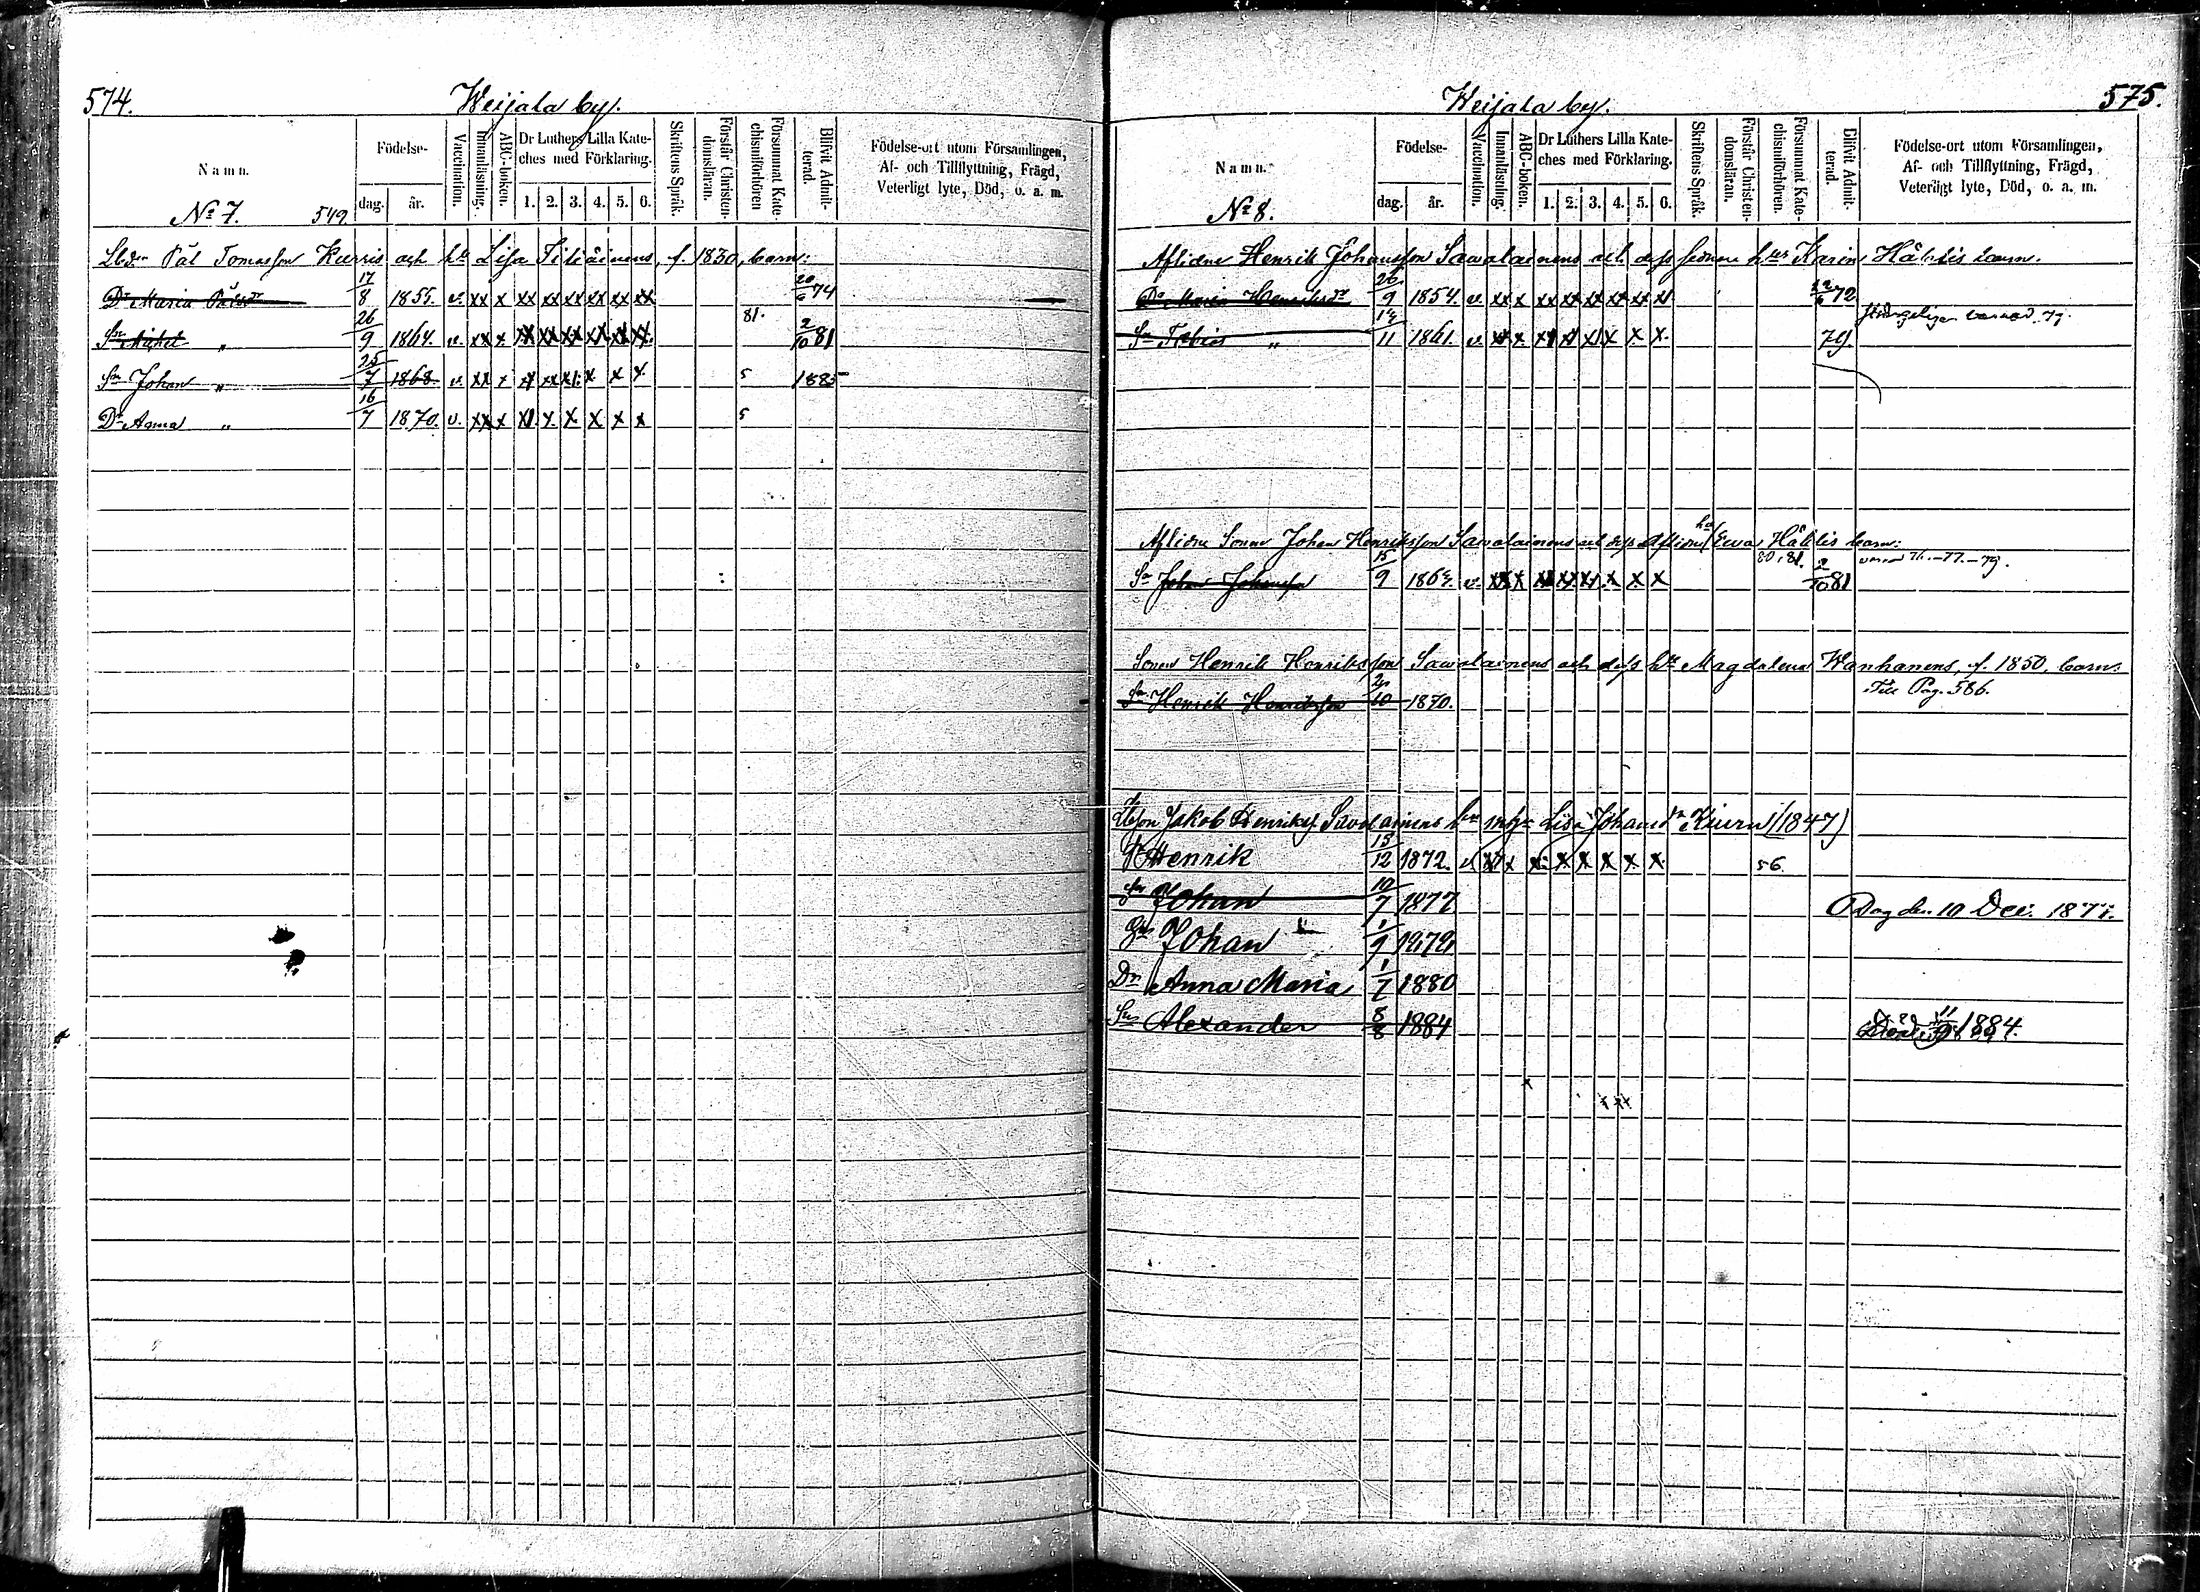 574.
Weijala by.
Namn.
Födelse-
dag.
år.
Vaccination.
Innanläsning.
ABC-boken.
Dr Luthers Lilla Kate-
ches med Förklaring.
1. 2. 3. 4. 5. 6.
Skriftens Språk.
Förstår Christen-
domsläran.
Försummat Kate-
chismiförhören
Blifvit Admit-
terad.
Födelse-ort utom Församlingen,
Af- och Tillflyttning, Frägd,
Veterligt lyte, Död, o. a. m.
No 7. 549.
Pål Tomasson Kurris och Lisa f. 1830, barn:
Dr Maria Pålsdr 17/8 1855. v. xx x xx xx xx xx xx xx 20/6 74
Sn Mikel " 26/9 1864. v. xx x xx xx xx xx xx xx 81. 2/10 81
Sn Johan " 25/7 1868. v. xx x x x x x 5 1885
Dr Anna " 16/7 1870. v. xx x x x x x x 5
575.
Weijala by.
Namn.
Födelse-
dag.
år.
Vaccination.
Innanläsning.
ABC-boken.
Dr Luthers Lilla Kate-
ches med Förklaring.
1. 2. 3. 4. 5. 6.
Skriftens Språk.
Förstår Christen-
domsläran.
Försummat Kate-
chismiförhören.
Blifvit Admit-
terad.
Födelse-ort utom Församlingen,
Af- och Tillflyttning, Frägd,
Veterligt lyte, Död, o. a. m.
No 8.
Aflidne Henrik Johansson Sawalainens och dess Karin Häkkis barn.
Dr Maria Henriksdr 26/9 1854. v. xx x xx xx xx xx xx 72
Sn Tobias " 11 1861. v. xx x x x x 79.
Aflidne Sonen Johan Henriksson Sawalainens och dess Aflidne Ewa Häkkis barn:
Sn Johan Johansson 15/9 1864. v. xx x xx xx x x x 80, 81. 2/10 81 76.-77.-79.
Sonen Henrik Henriksson Sawalainens och dess Magdalena Wanhanens, f. 1850, barn.
Sn Henrik Henriksson 10 1870. Till Pag. 586.
Jakob Henrikss. Savolainens Lisa Johansdr (1847)
Henrik 13/12 1872. v. xx x x x x x x x 56.
Sn Johan 10/7 1877 Dog den 10 Dec. 1877.
Sn Johan " 1/9 1879
Dr Anna Maria 1/7 1880
Sn Alexander 8/8 1884 1884.